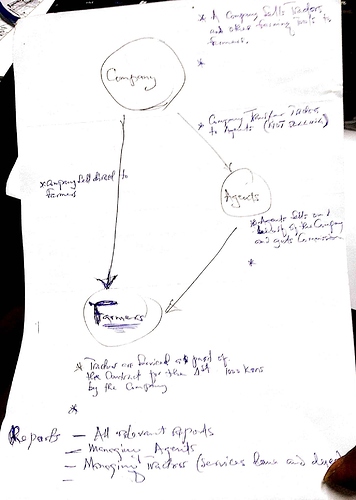 * A Company Sells Tractors
and other farming tools to
farmers.
*
Company
* Company Transfer Tractors
to Agents (Not
* Company Sell direct to
Farmers
Agents
* Agents Sells on
behalf of the Company
and gets Commission
*
Farmers
* Tractors are Serviced as part of
the Contract for the 1st 1000 Kms
by the Company
*
Reports — All relevant reports
— Managing Agents
— Managing Tractors (Services Done and
—